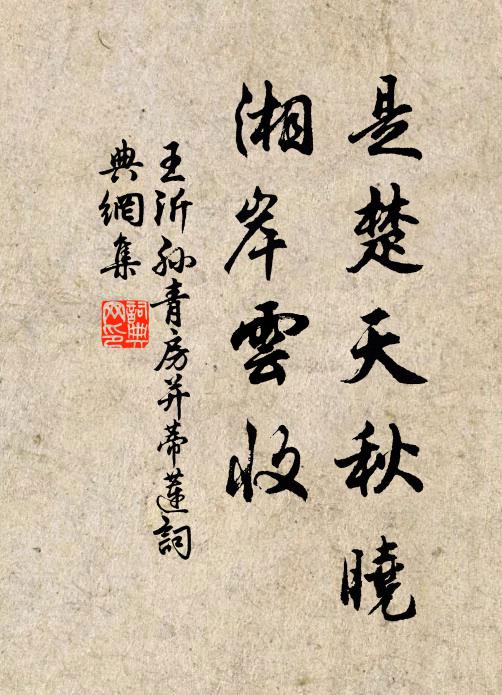 是楚天秋曉
湘岸雲收
王沂孫青房并蒂蓮詞
典網集
詞典網印